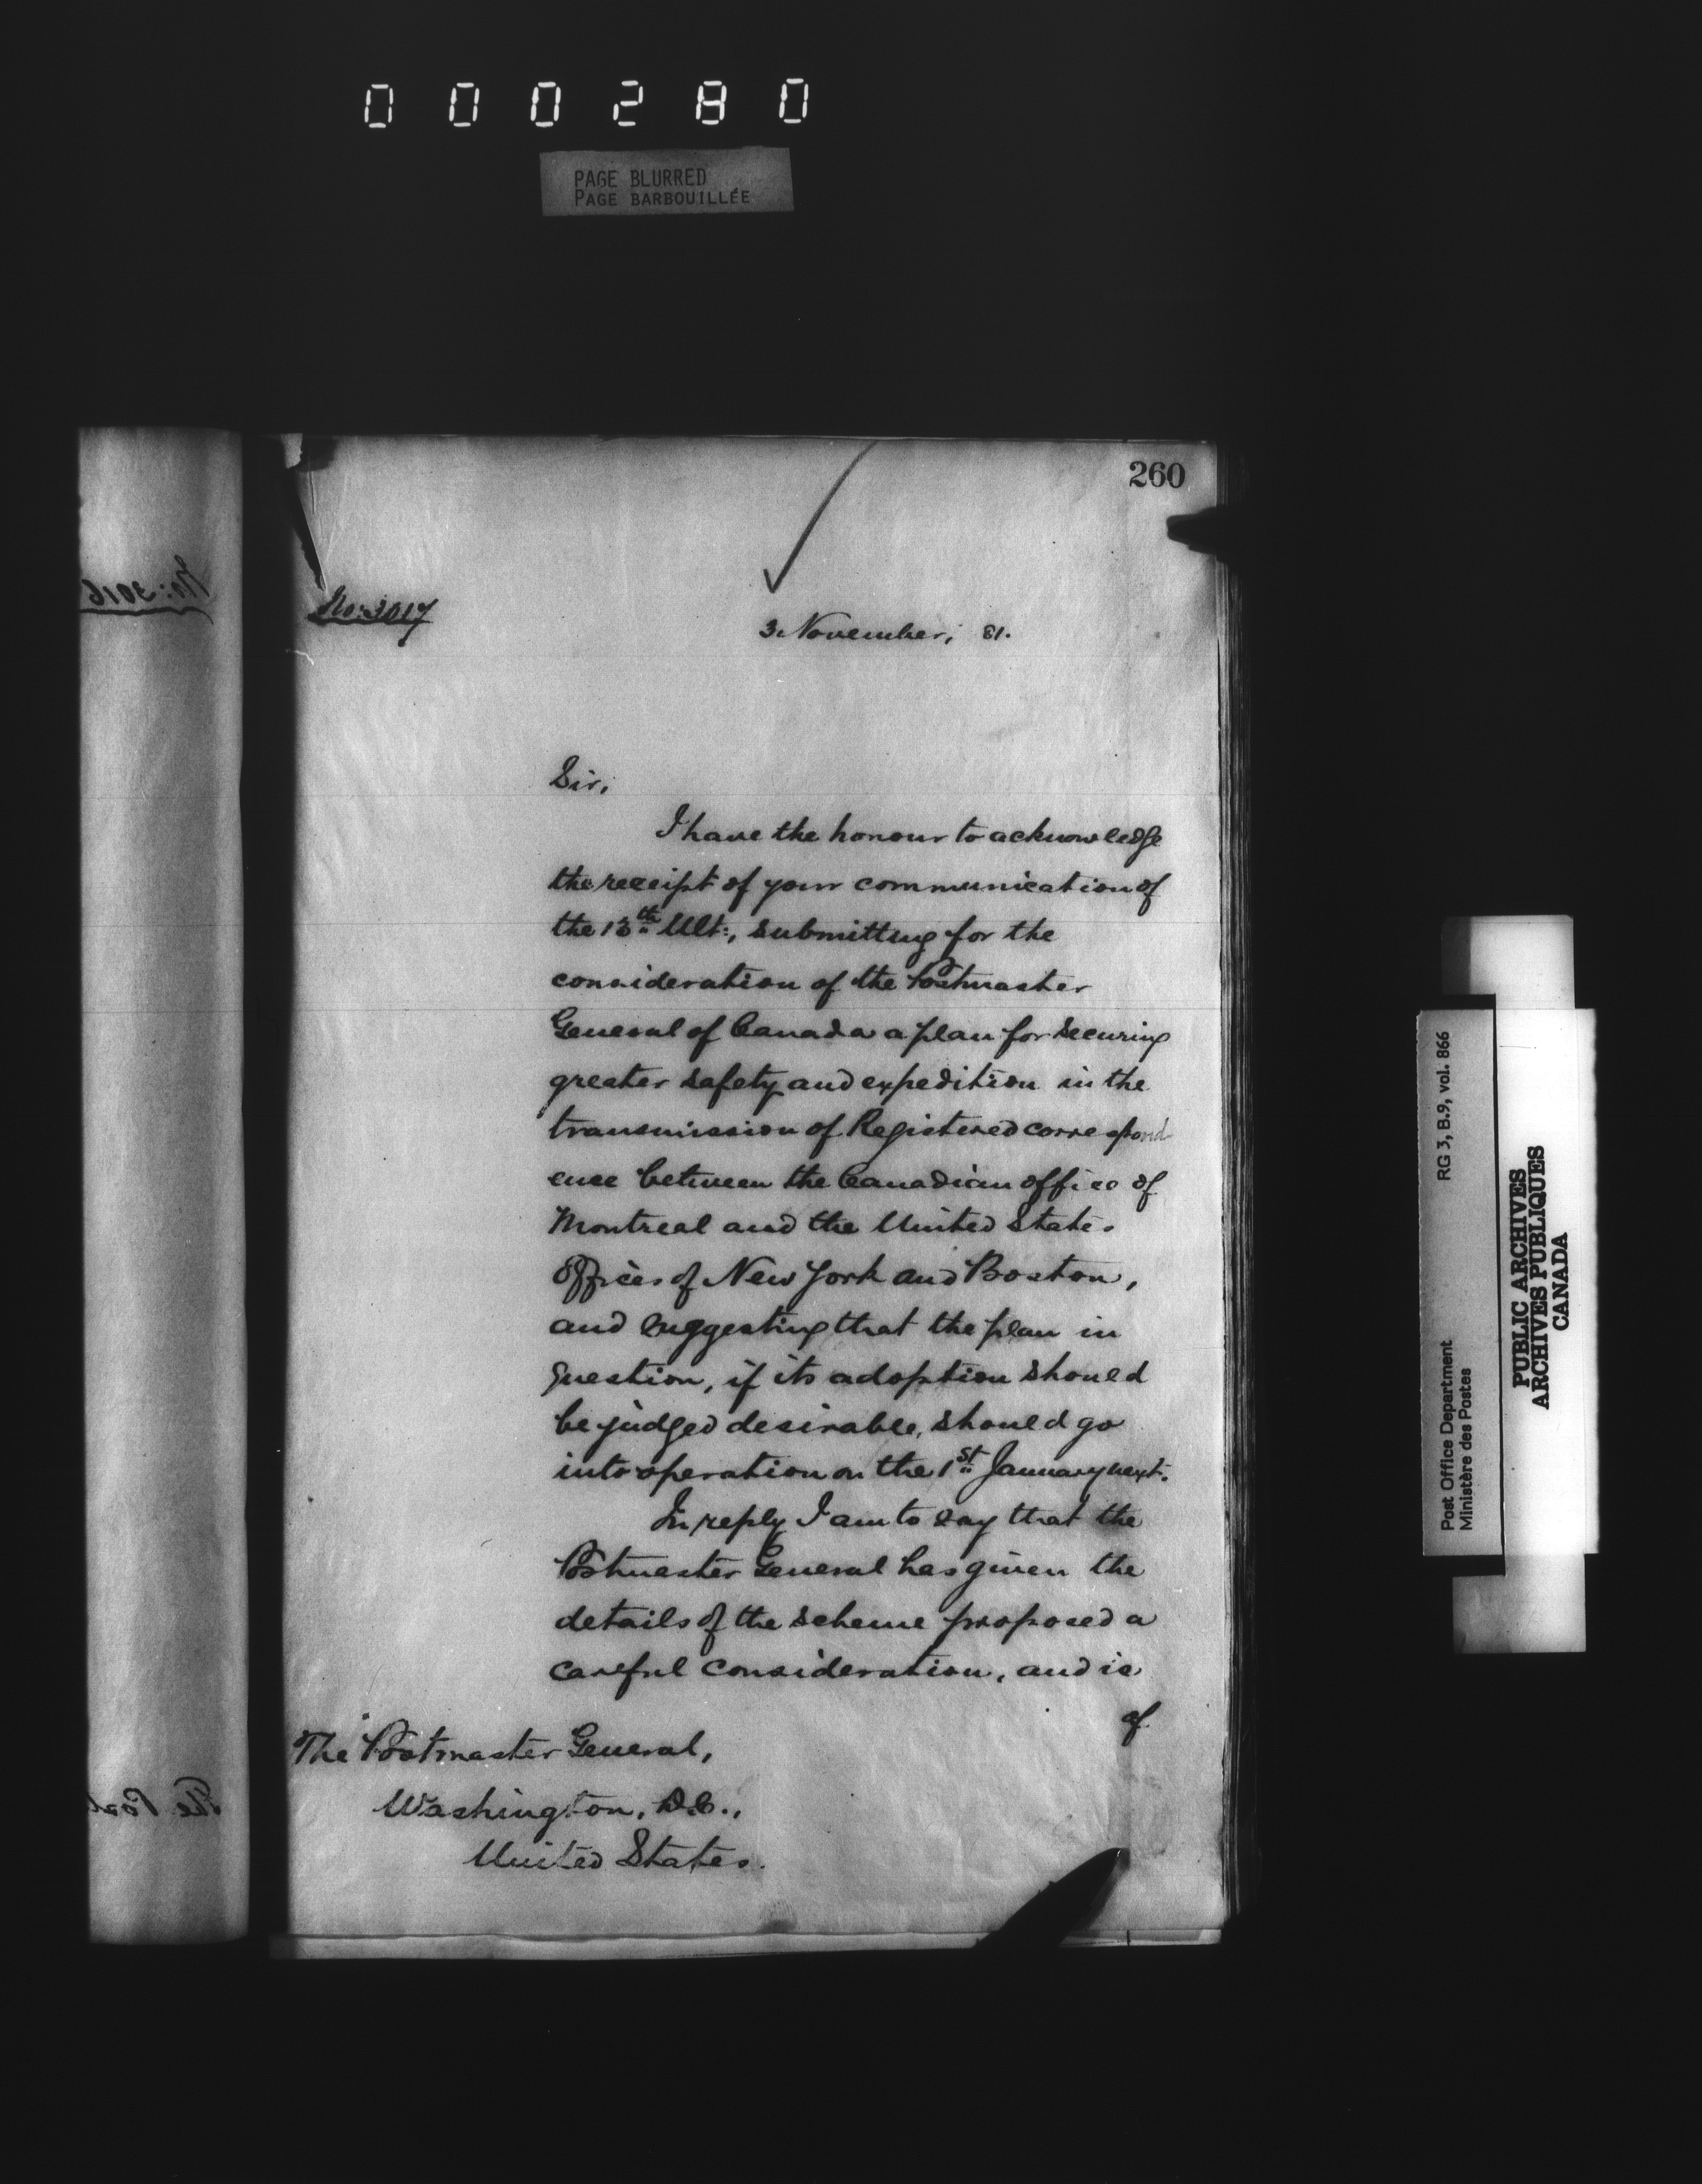 000280
PAGE BLURRED
PAGE BARBOUILLÉE
260
No: 3016
No: 3017
3 November, 81.
Sir,
I have the honour to acknowledge
the receipt of your communication of
the 13th Ult:, submitting for the
consideration of the Postmaster
General of Canada a plan for securing
greater safety and expedition in the
transmission of Registered correspond
ence between the Canadian office of
Montreal and the United States
Offices of New York and Boston,
and suggesting that the plan in
question, if its adoption should
be judged desirable, should go
into operation on the 1st January next.
In reply I am to say that the
Postmaster General has given the
details of the scheme proposed a
careful consideration, and is
of
The Postmaster General,
Washington, D.C.,
United States.
The Post
RG 3, B.9, vol. 866
Post Office Department
Ministère des Postes
PUBLIC ARCHIVES
ARCHIVES PUBLIQUES
CANADA